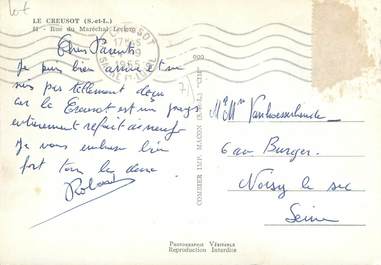 LE CREUSOT (S.-et-L.)
41 - Rue du Maréchal Leclerc
Chers Parents
Je suis bien arrivé et ne
suis pas tellement déçu
car le Creusot est un pays
entièrement refait de neuf
Je vous embrasse bien
fort tous les deux
Roland
COMBIER IMP. MACON (S.-&-L.) "CIM"
Mr Mme
6 av Burger
Noisy le sec
Seine
PHOTOGRAPHIE VÉRITABLE
Reproduction Interdite